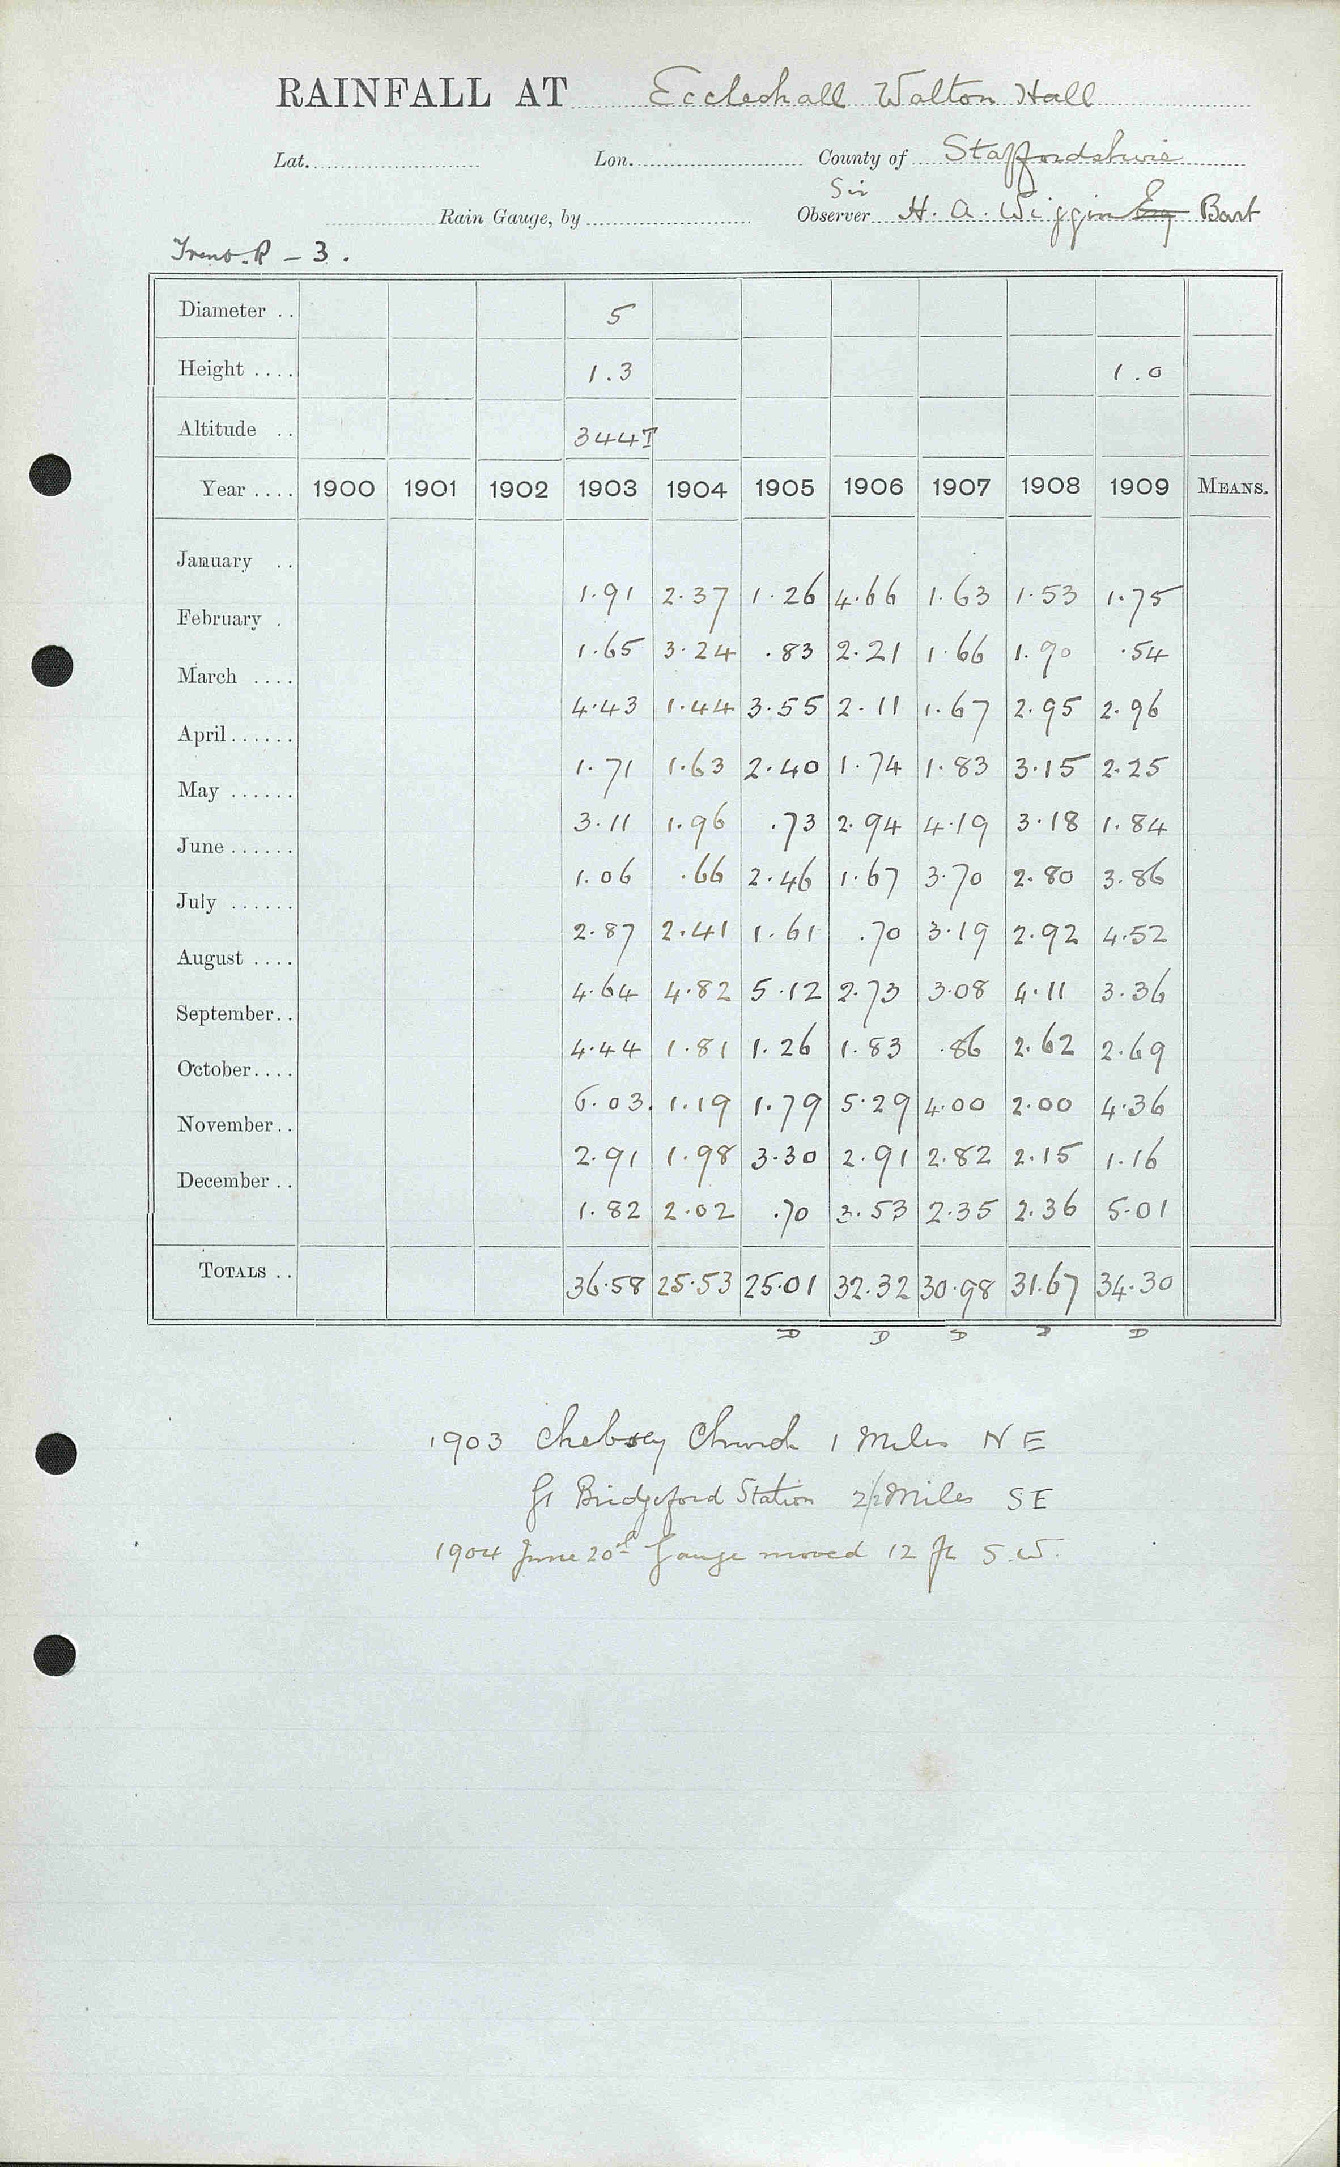 RAINFALL AT Eccleshall Walton Hall
Lat. Lon. County of Staffordshire
Sir
Rain Gauge, by Observer H. A. Wiggin Esq Bart
Trent R – 3.
Diameter .. 5
Height .... 1.3 1.0
Altitude .. 344T
Year .... 1900 1901 1902 1903 1904 1905 1906 1907 1908 1909 MEANS.
January .. 1.91 2.37 1.26 4.66 1.63 1.53 1.75
February . 1.65 3.24 .83 2.21 1.66 1.90 .54
March .... 4.43 1.44 3.55 2.11 1.67 2.95 2.96
April...... 1.71 1.63 2.40 1.74 1.83 3.15 2.25
May ...... 3.11 1.96 .73 2.94 4.19 3.18 1.84
June...... 1.06 .66 2.46 1.67 3.70 2.80 3.86
July ...... 2.87 2.41 1.61 .70 3.19 2.92 4.52
August .... 4.64 4.82 5.12 2.73 3.08 4.11 3.36
September.. 4.44 1.81 1.26 1.83 .86 2.62 2.69
October.... 6.03. 1.19 1.79 5.29 4.00 2.00 4.36
November.. 2.91 1.98 3.30 2.91 2.82 2.15 1.16
December .. 1.82 2.02 .70 3.53 2.35 2.36 5.01
TOTALS .. 36.58 25.53 25.01 32.32 30.98 31.67 34.30
D D D D D
1903 Chebsey Church 1 Miles NE
Gt Bridgeford Station 2½ Miles SE
1904 June 20th Gauge moved 12 ft S.W.